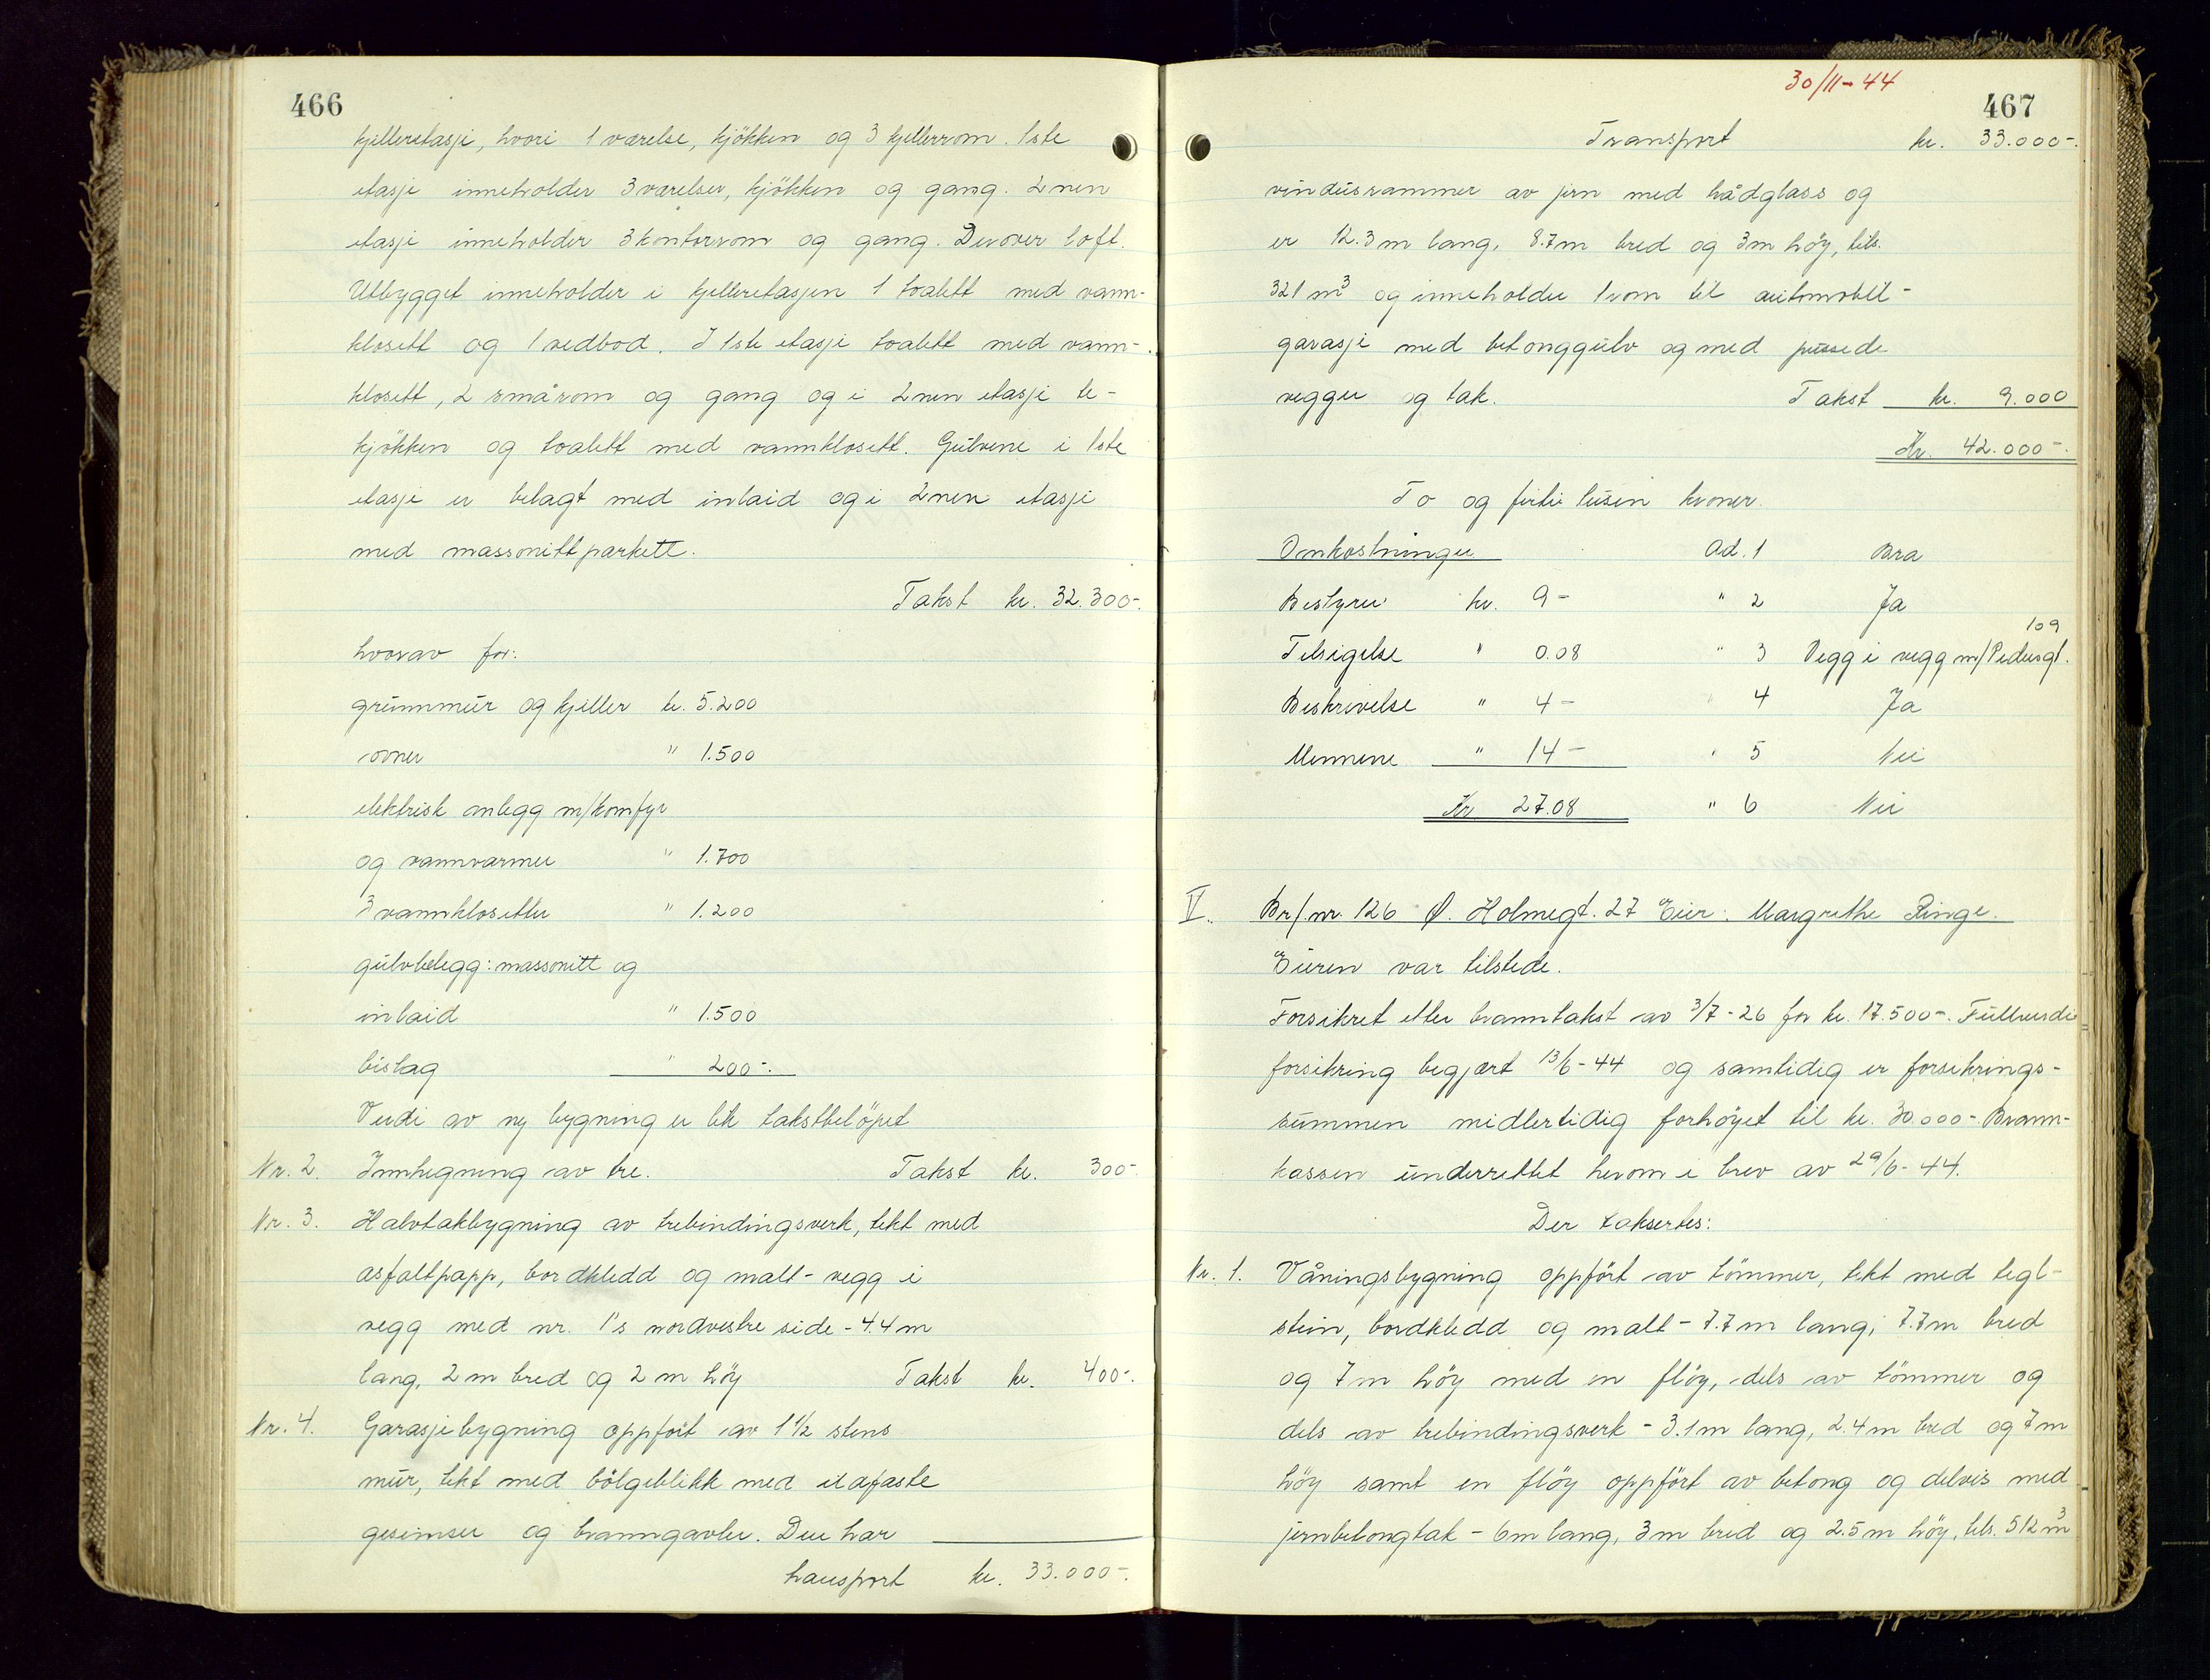 466
kjelleretasje, hvori 1 værelse, kjökken og 3 kjellerrom. 1ste
etasje inneholder 3 værelser, kjökken og gang. 2nen
etasje inneholder 3 kontorrom og gang. Derover loft.
Utbygget inneholder i kjelleretasjen 1 toalett med vann-
klosett og 1 vedbod. I 1ste etasje toalett med vann-
klosett, 2 smårom og gang og i 2nen etasje te-
kjökken og toalett med vannklosett. Gulvene i 1ste
etasje er belagt med inlaid og i 2nen etasje
med massonittparkett.
Takst kr. 32.300-.
hvorav for:
grunnmur og kjeller kr. 5.200
ovner " 1.500
elektrisk anlegg m/komfyr
og vannvarmer " 1.700
3 vannklosetter " 1.200
gulvbelegg: massonitt og
inlaid " 1.500
bislag " 200-.
Verdi av ny bygning er lik takstbelöpet
Nr. 2. Innhegning av tre. Takst kr. 300-.
Nr. 3. Halvtakbygning av trebindingsverk, tekt med
asfaltpapp, bordkledd og malt - vegg i
vegg med nr. 1's nordvestre side - 4.4 m
lang, 2 m bred og 2 m höy Takst kr. 400-.
Nr. 4. Garasjebygning oppfört av 1 1/2 stens
mur, tekt med bölgeblikk med ildfaste
gesimser og branngavler. Den har
transport kr. 33.000-.
30/11-44
467
Transport kr. 33.000-.
vindusrammer av jern med trådglass og
er 12.3 m lang, 8.7 m bred og 3 m höy, tils.
321 m³ og inneholder 1 rom til automobil-
garasje med betonggulv og med pussede
vegger og tak. Takst kr. 9.000
Kr. 42.000-.
To og förti tusen kroner.
Omkostninger Ad. 1 Bra
Bestyrer kr. 9- " 2 Ja
109
Tilsigelse " 0.08 " 3 Vegg i vegg m/Pedersgt.
Beskrivelse " 4- " 4 Ja
Mennene " 14- " 5 Nei
Kr 27.08 " 6 Nei
V. Br/.nr. 126 Ø. Holmegt. 27 Eier: Margrethe Ringe.
Eieren var tilstede.
Forsikret etter branntakst av 3/7-26 for kr. 17.500-. Fullverdi
forsikring begjært 13/6-44 og samtidig er forsikrings-
summen midlertidig forhöyet til kr. 30.000-. Brann-
kassen underrettet herom i brev av 29/6-44.
Der takseres:
Nr. 1. Våningsbygning oppfört av tömmer, tekt med tegl-
stein, bordkledd og malt - 7.7 m lang, 7.7 m bred
og 7 m höy med en flöy, dels av tömmer og
dels av trebindingsverk - 3.1 m lang, 2.4 m bred og 7 m
höy samt en flöy oppfört av betong og delvis med
jernbetongtak - 6 m lang, 3 m bred og 2.5 m höy, tils. 512 m³